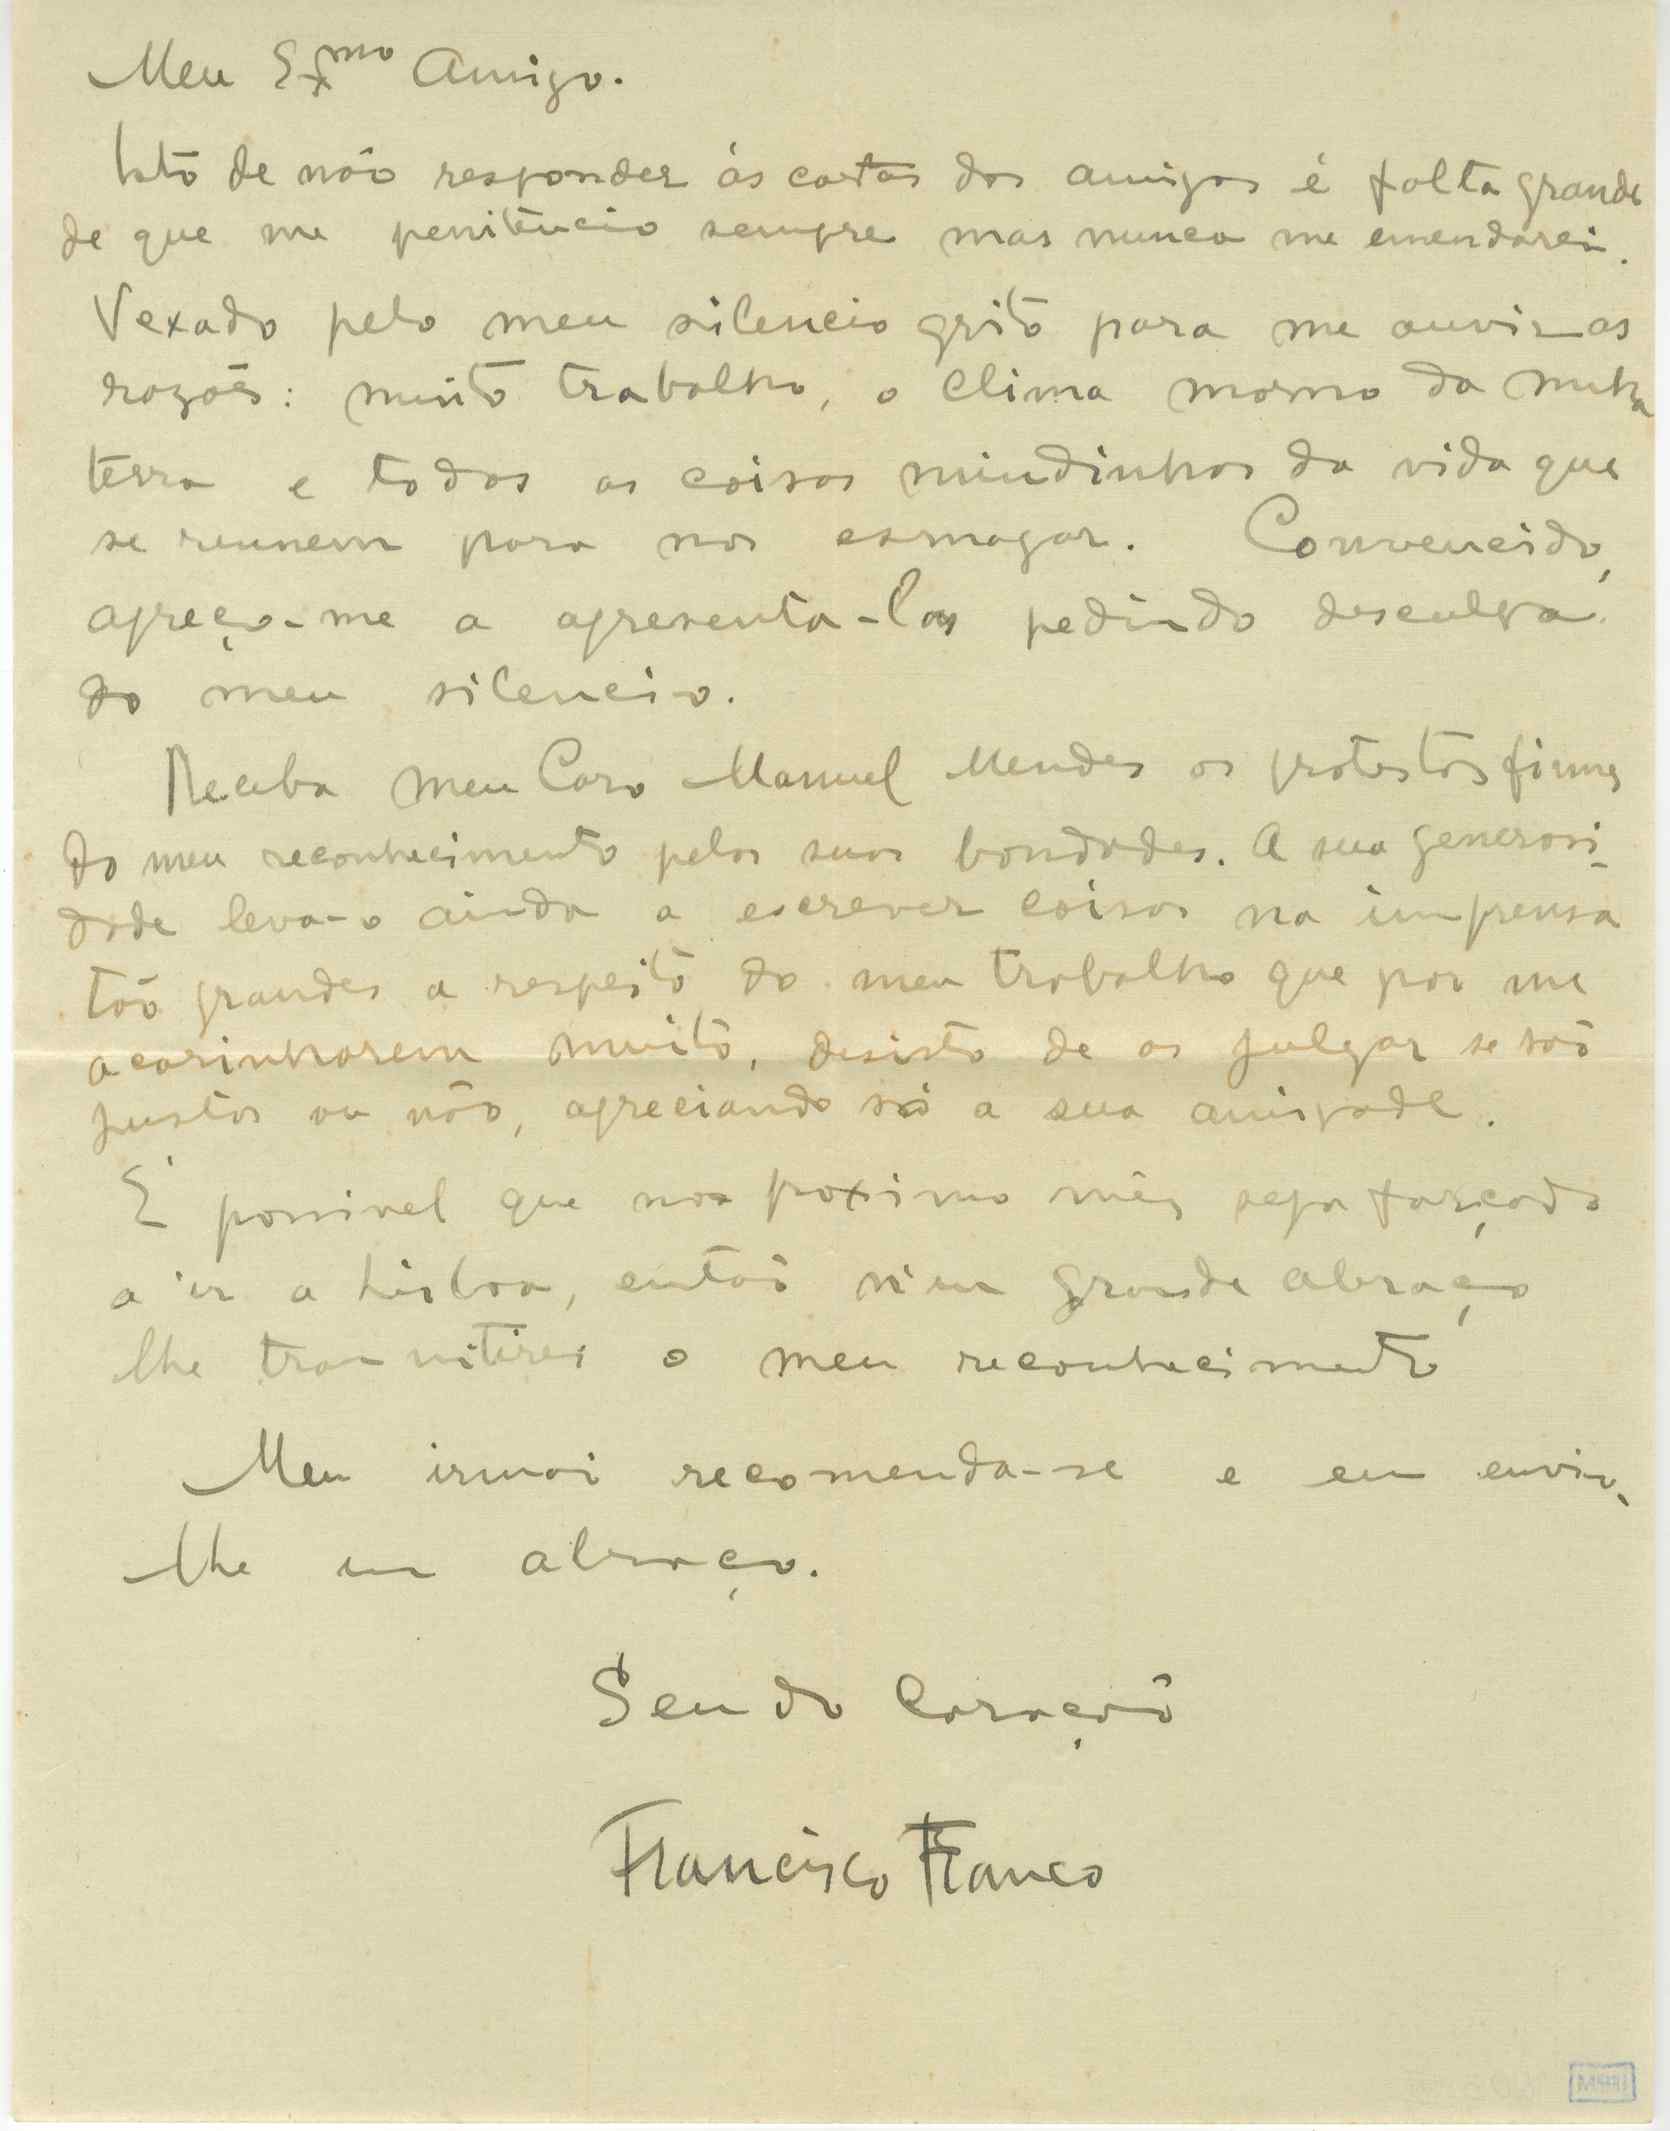 Meu Exmo Amigo.
Isto de não responder ás cartas dos amigos é falta grande
de que me penitencio sempre mas nunca me emendarei.
Vexado pelo meu silencio grito para me ouvir as
razões: muito trabalho, o clima morno da minha
terra e todas as coisas miudinhas da vida que
se reunem para nos esmagar. Convencido,
apreço-me a apresenta-las pedindo desculpa
do meu silencio.
Receba meu Caro Manuel Mendes os protestos firmes
do meu reconhecimento pelas suas bondades. A sua generosi-
dade leva-o ainda a escrever coisas na imprensa
tão grandes a respeito do meu trabalho que por me
acarinharem muito, desisto de as julgar se são
justas ou não, apreciando só a sua amizade.
É possivel que no proximo mês seja forçado
a ir a Lisboa, então n'um grande abraço
lhe transmitirei o meu reconhecimento
Meu irmão recomenda-se e eu envio-
lhe um abraço.
Seu do Coração
Francisco Franco